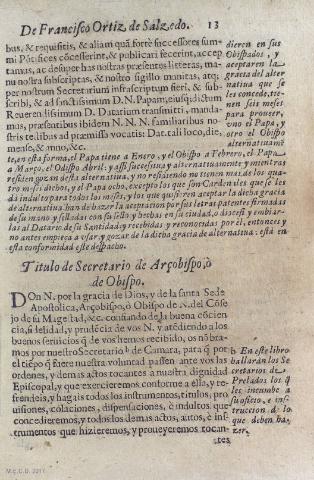 De Francisco Ortiz de Salzedo. 13
bus, & requisitis, & aliam quā fortè successores sum-
mi Pōtifices cōcesserint, & publicari fecerint, accep
tamus, ac desuper has nostras præsentes litteras, ma-
nu nostra subscriptas, & nostro sigillo munitas, atq;
per nostrum Secretarium infrascriptum fieri, & sub-
scribi, & ad sanctissimum D. N. Papam, eiusq; dictum
Reuerendissimum D. Datarium transmitti, manda-
mus, præsentibus ibidem N. N. N. familiaribus no-
stris testibus ad præmissa vocatis: Dat. tali loco, die,
mense, & anno, &c.
dieren en sus
Obispados, y
aceptaren la
gracia del alter
natiua que se
les concede, tie-
nen seis meses
para proueer,
vno el Papa, y
otro el Obispo
alternatiuamē
te, en esta forma, el Papa tiene a Enero, y el Obispo a Febrero, el Papa
a Março, el Odispo Abril: y assi successiua y alternatiuamente y mientras
residen gozan desta alternatiua, y no residiendo no tienen mas de los qua-
tro meses dichos, y el Papa ocho, excepto los que son Cardenales que se les
dá indulto para todos los meses, y los que quisieren aceptar la dicha gracia
de alternatiua han de hazer la aceptacion por sus letras patentes firmadas
de su mano y selladas con su sello y hechas en su ciudad, o diocesi y embiar-
las al Datario de su Santidad: y recebidas y reconocidas por él, entonces y
no antes empieça a vsar y gozar de la dicha gracia de alternatiua: está en
esta conformidad este despacho.
Titulo de Secretario de Arçobispo, ò
de Obispo.
DON N. por la gracia de Dios, y de la santa Sede
Apostolica, Arçobispo, ò Obispo de N. del Cōse
jo de su Magestad, &c. confiando de la buena cōcien
cia, fidelidad, y prudēcia de vos N. y atēdiendo a los
buenos seruicios q̄ de vos hemos recibido, os nōbra
mos por nuestro Secretario h de Camara, para q̄ por
el tiēpo q̄ fuere nuestra voluntad passen ante vos las
ordenes, y demas actos tocantes a nuestra dignidad
Episcopal, y que exercieremos conforme a ella, y re-
frendeis, y hagais todos los instrumentos, titulos, pro
uisiones, colaciones, dispensaciones, è indultos que
concedieremos, y todos los demas actos, autos, è ins-
trumentos que hizieremos, y proueyeremos tocan-
tes
h En este libro
hallarán los Se
cretarios de
Prelados los q̄
les incumbe a
su oficio, e ins-
truccion d lo
que deben ha-
zer.